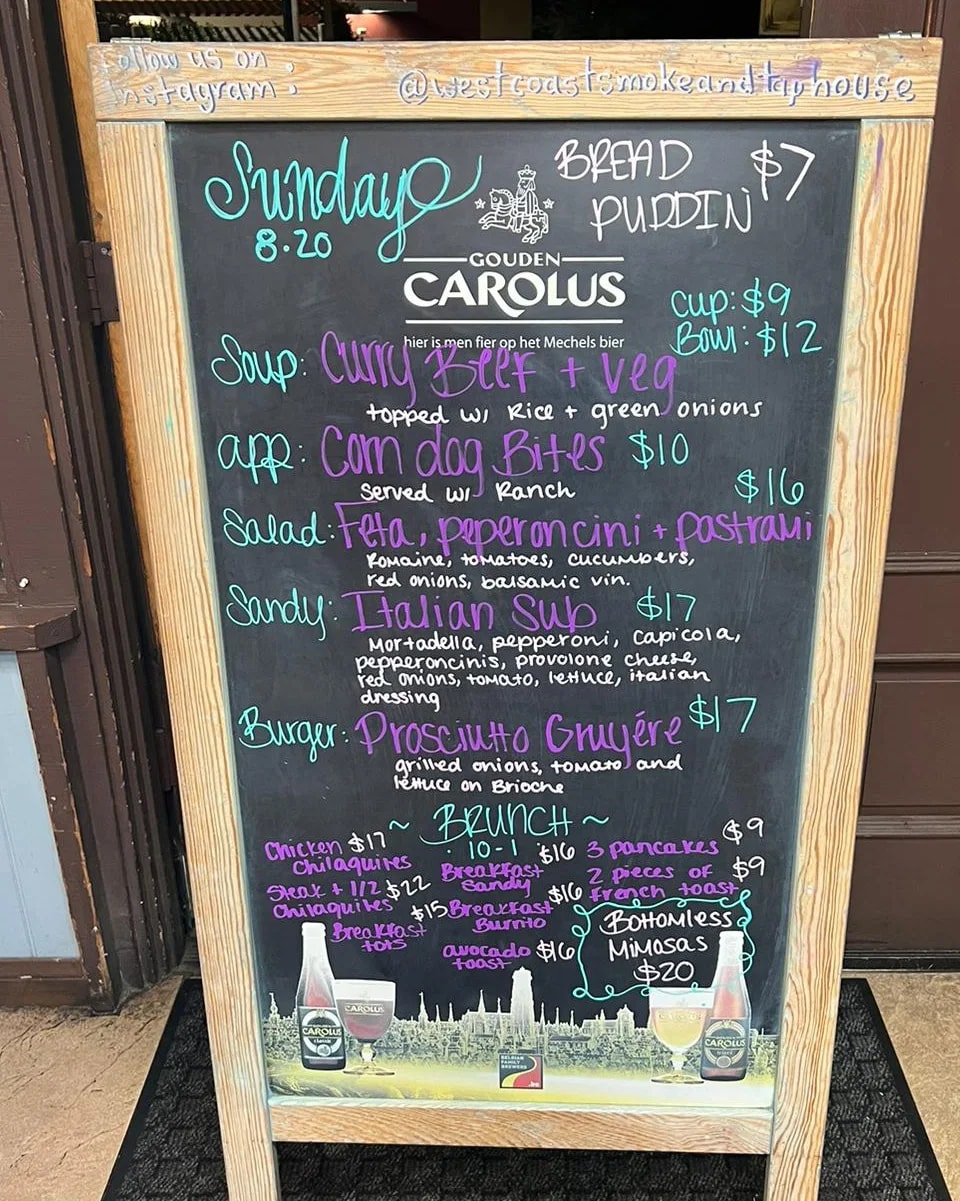 Follow us on :
Instagram :
@westcoastsmokeandtaphouse
Sunday
8.20
BREAD
PUDDIN'
$7
GOUDEN
CAROLUS
hier is men fier op het Mechels bier
Cup: $9
Bowl: $12
Soup: Curry Beef + Veg
topped w/ Rice + green onions
app: Corn dog Bites $10
Served w/ Ranch
$16
Salad: Feta, peperoncini + pastrami
Romaine, tomatoes, cucumbers,
red onions, balsamic vin.
Sandy: Italian Sub $17
Mortadella, pepperoni, capicola,
pepperoncinis, provolone cheese,
red onions, tomato, lettuce, italian
dressing
Burger: Prosciutto Gruyére $17
grilled onions, tomato and
lettuce on Brioche
~ BRUNCH ~
10-1
Chicken $17
Chilaquiles
Steak + 1/2 $22
Chilaquiles
$15
Breakfast
tots
$16
Breakfast
Sandy
$16
Breakfast
Burrito
avocado $16
toast
$9
3 pancakes
2 pieces of $9
french toast
Bottomless
Mimosas
$20
CAROLUS
CAROLUS
classic
CAROLUS
CAROLUS
BELGIAN
FAMILY
BREWERS